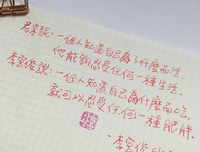 尼采說：一個人知道自己為了什麼而活，
他就能忍受任何一種生活。
李宮俊說：一個人知道自己為什麼而吃，
就可以忍受任何一種肥胖。
-李宮俊